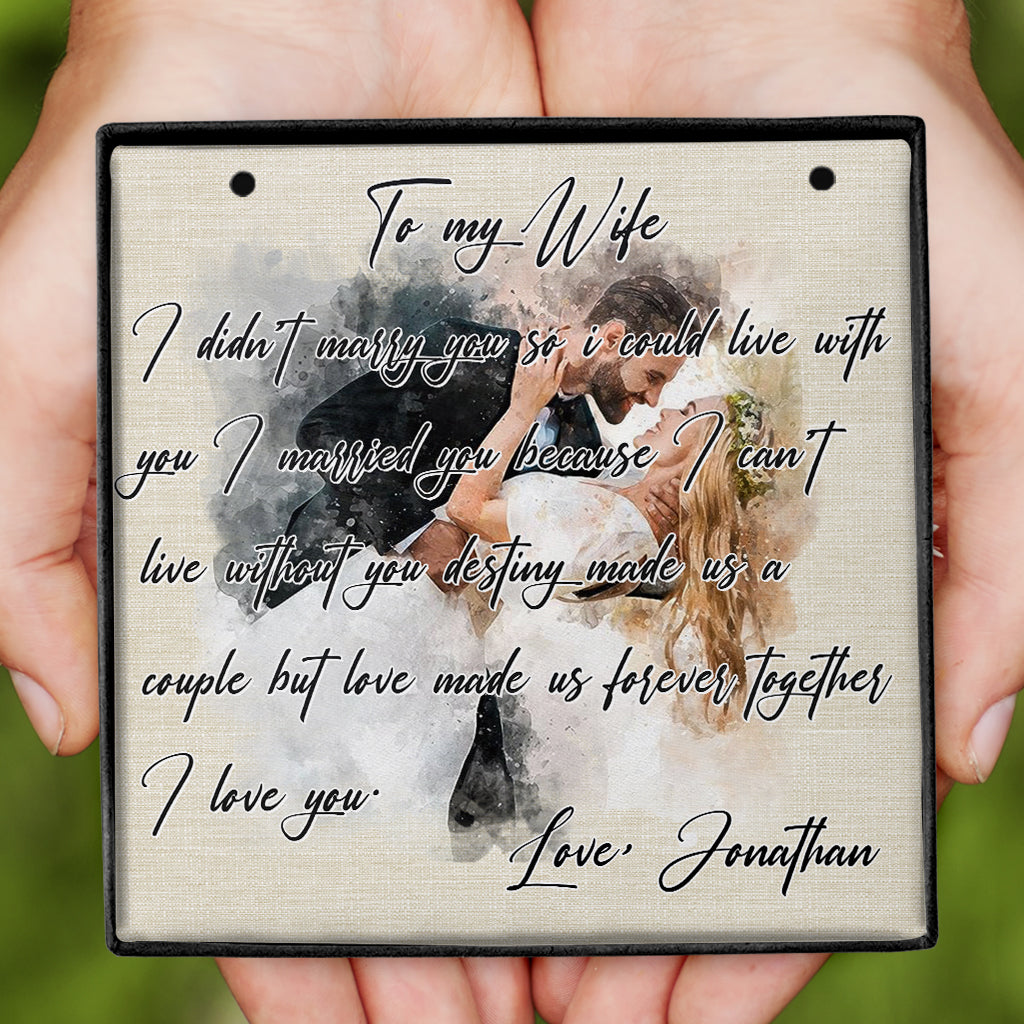 To my Wife
I didn't marry you so i could live with
you I married you because I can't
live without you destiny made us a
couple but love made us forever together
I love you.
Love, Jonathan